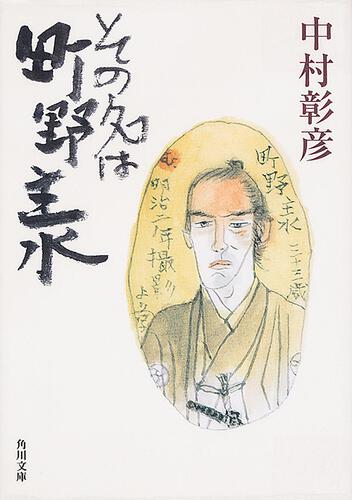 中村彰彦
その名は
町野主水
町野主水
三十三歳
明治二年撮影
より
角川文庫